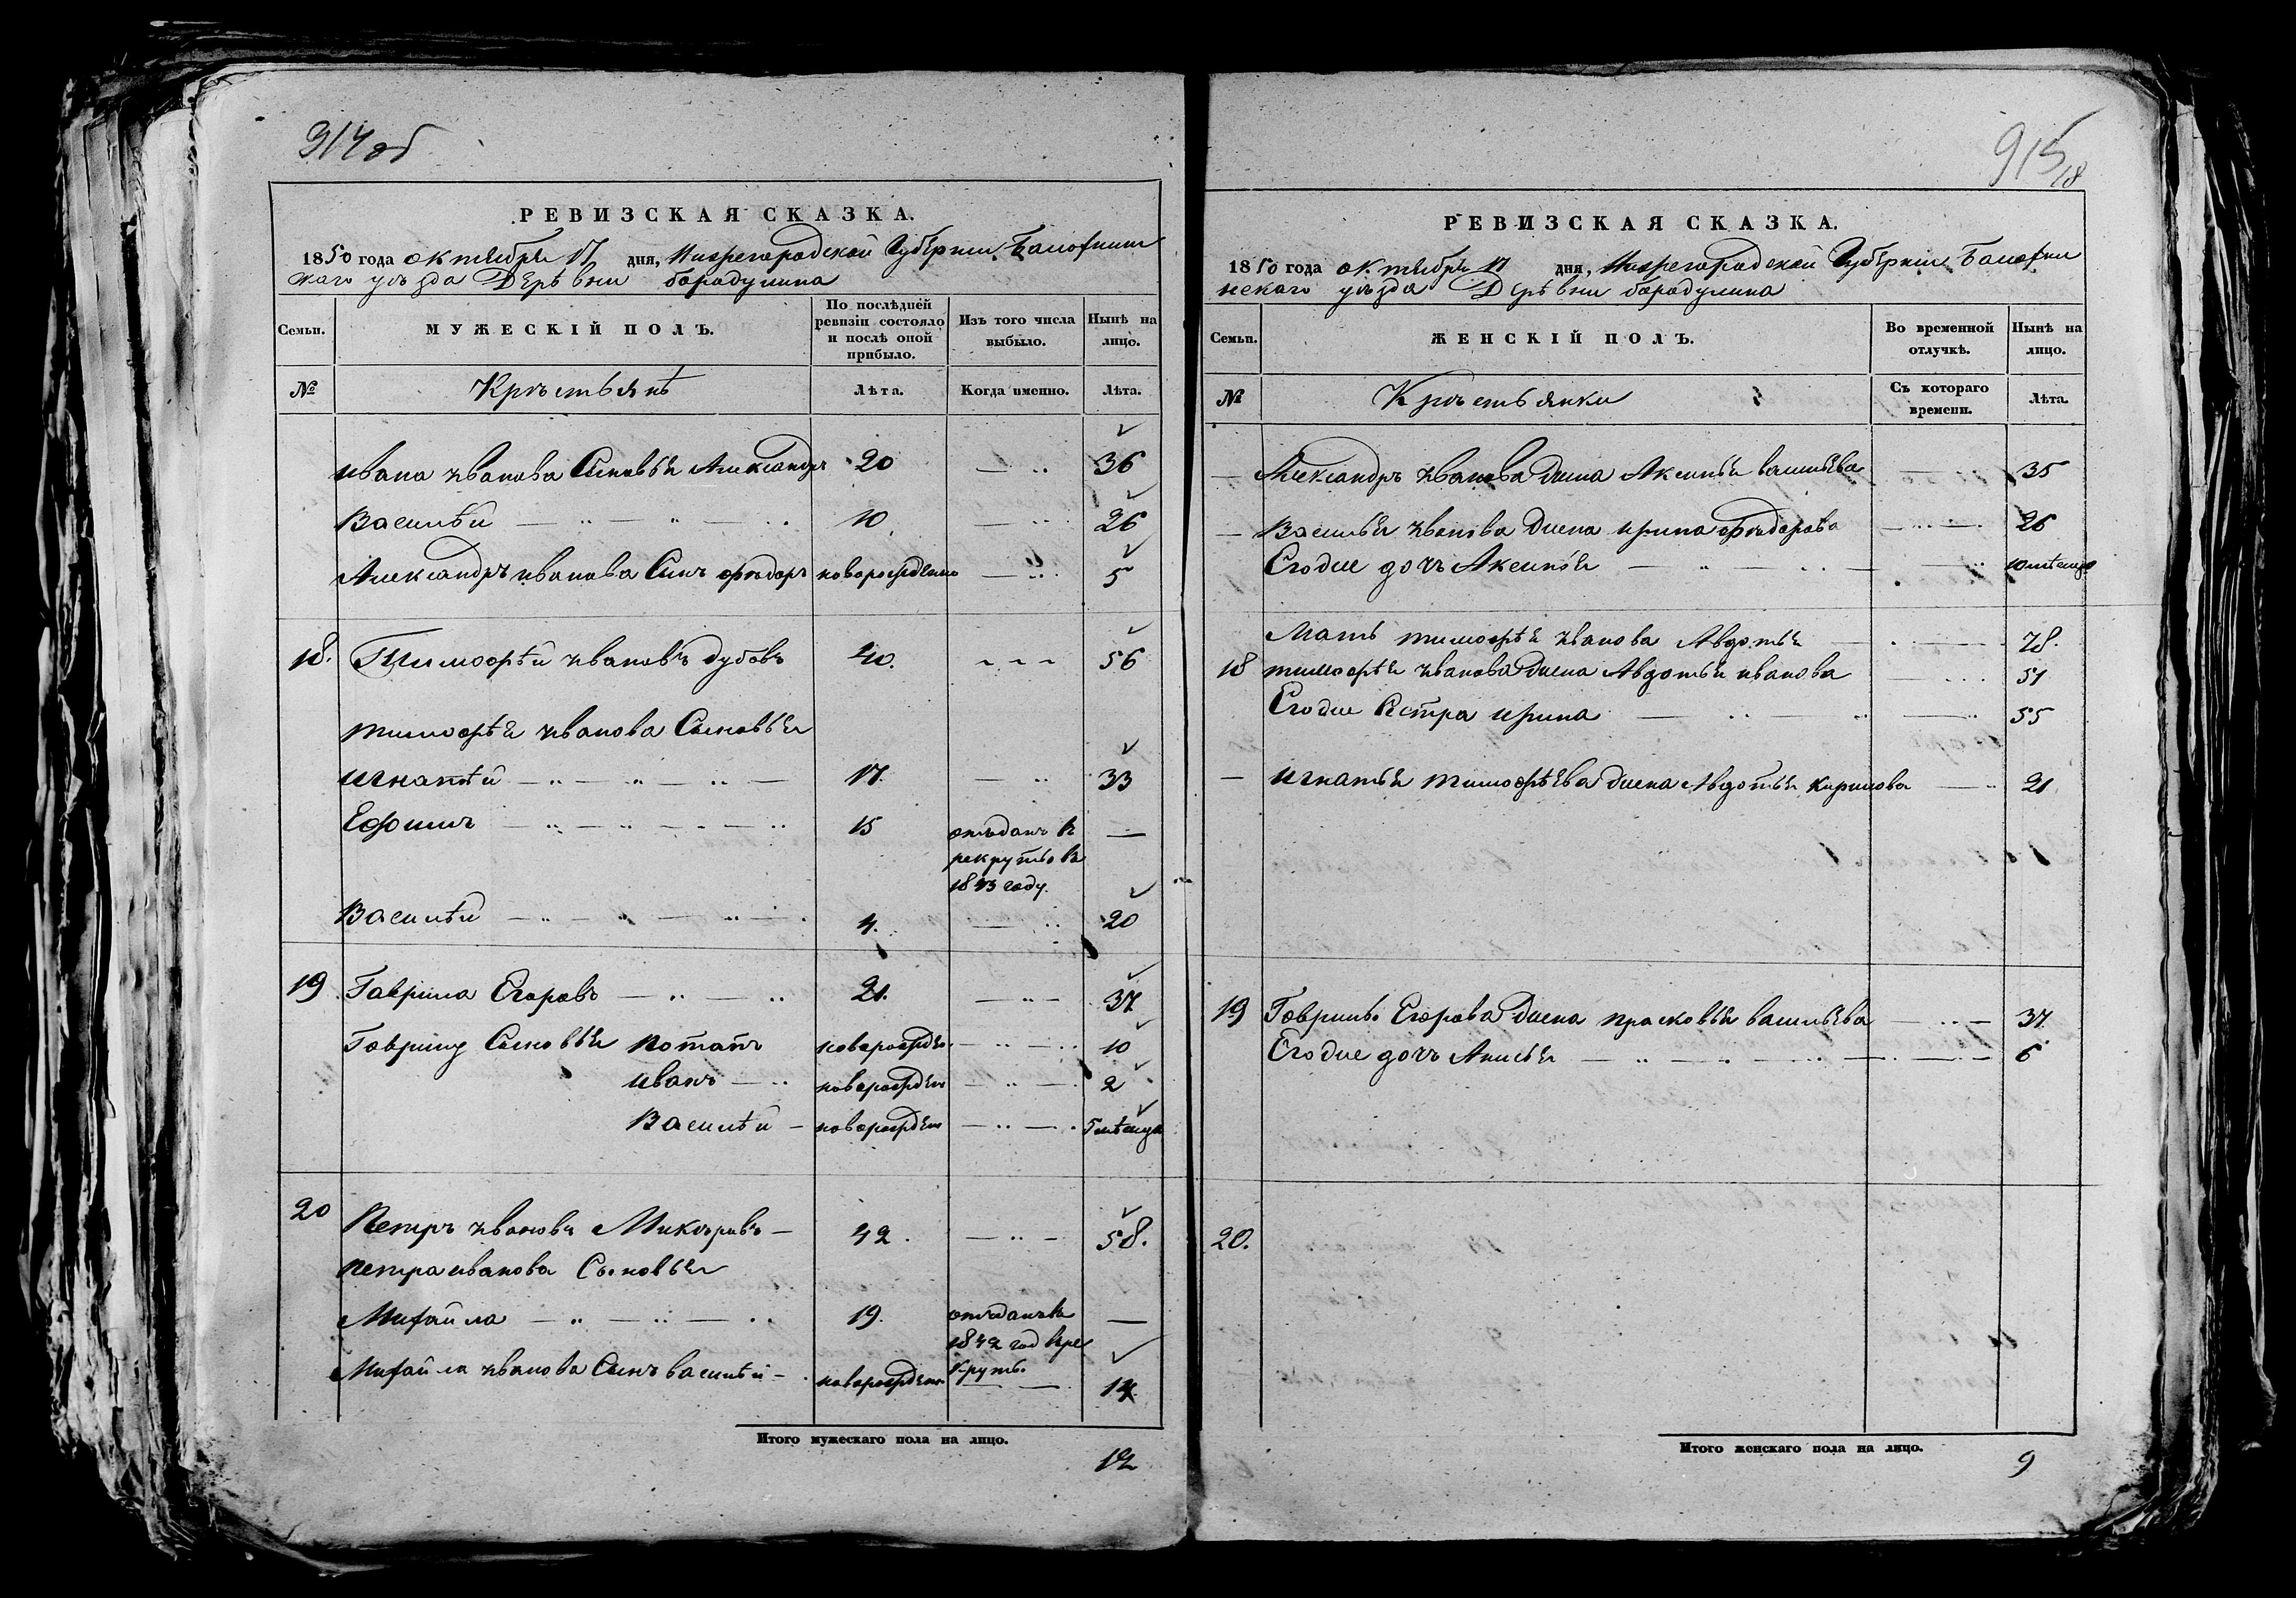 914 об
РЕВИЗСКАЯ СКАЗКА.
1850 года октября 17 дня, Нижегородской Губернии, Балахнин
скаго уѣзда Дерѣвни бородулина
Семьи.
МУЖЕСКІЙ ПОЛЪ.
По послѣдней ревизіи состояло и послѣ оной прибыло.
Изъ того числа выбыло.
Нынѣ на лицо.
№ Крѣстьянѣ Лѣта. Когда именно. Лѣта.
ивана иванова Сыновья Александръ 20 36
Василѣй 10 26
Александръ иванова Сынъ фѣдоръ новорожденно 5
18. Тимофѣй ивановъ дубовъ 40. 56
тимофѣя иванова Сыновья
игнатѣй 17. 33
Ефимъ 15 отъданъ в —
рекруты въ
1843 году.
Василѣй 4. 20
19 Гаврила Егоровъ 21. 37
Гаврилу Сыновья потапъ новорожден. 10
иванъ новорожден 2
Василѣй новорожден 5 мѣсеца
20 Петръ ивановъ 42. 58.
петра иванова Сыновья
Михайла 19. отъданъ въ —
1842 год в ре
круты.
Михайла иванова Сынъ василѣй новорожден. 14
Итого мужескаго пола на лицо.
12
915
18
РЕВИЗСКАЯ СКАЗКА.
1850 года октября 17 дня, Нижегородской Губернии Балахни
нскаго уѣзда Дерѣвни бородулина
Семьи.
ЖЕНСКІЙ ПОЛЪ.
Во временной отлучкѣ.
Нынѣ на лицо.
№ Крѣстьянки Съ котораго времени. Лѣта.
Александръ иванова жена Аксинья васильева 35
Василья иванова жена ирина фѣдорова 26
Егоже дочъ Аксинья 10 мѣсецов
Мать тимофѣя иванова Авдотья 78.
18 тимофѣя иванова жена Авдотья иванова 51
Егоже Сестра ирина 55
игнатья тимофѣева жена Авдотья кирилова 21
19 Гаврилы Егорова жена прасковья васильева 37.
Егоже дочъ Анисья 6
20.
Итого женскаго пола на лицо.
9